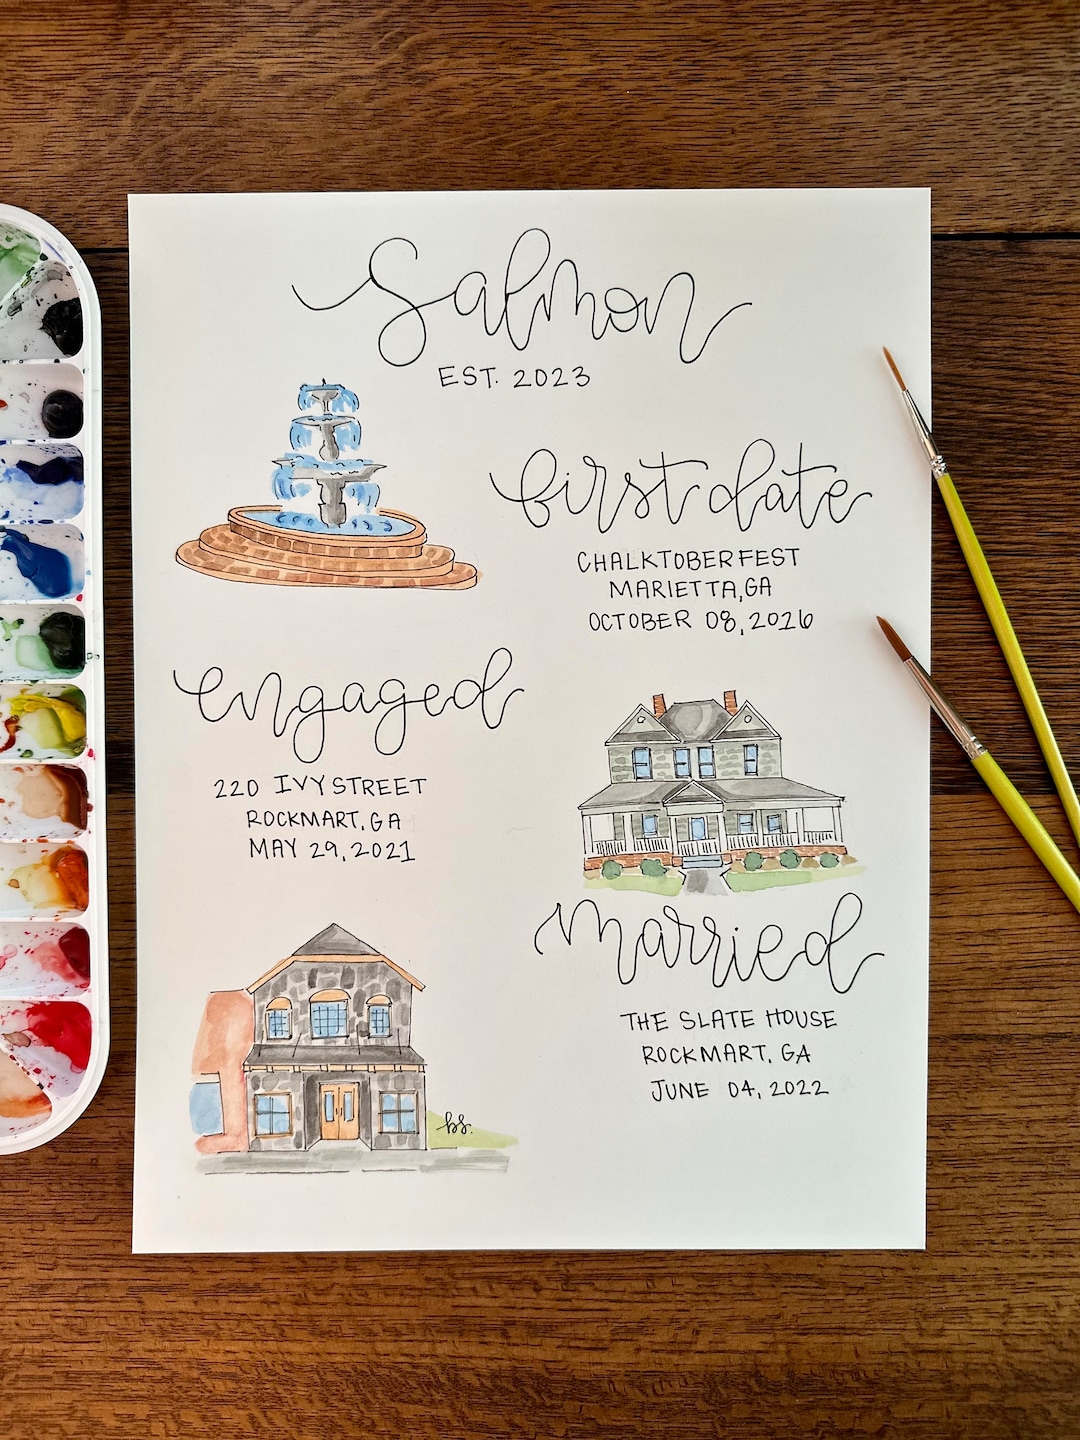 Salmon
EST. 2023
first date
CHALKTOBERFEST
MARIETTA, GA
OCTOBER 08, 2016
engaged
220 IVY STREET
ROCKMART, GA
MAY 29, 2021
married
THE SLATE HOUSE
ROCKMART, GA
JUNE 04, 2022
bs.